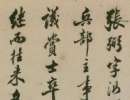 張弼字汝
兵部主事
議賞士卒
继而桂来